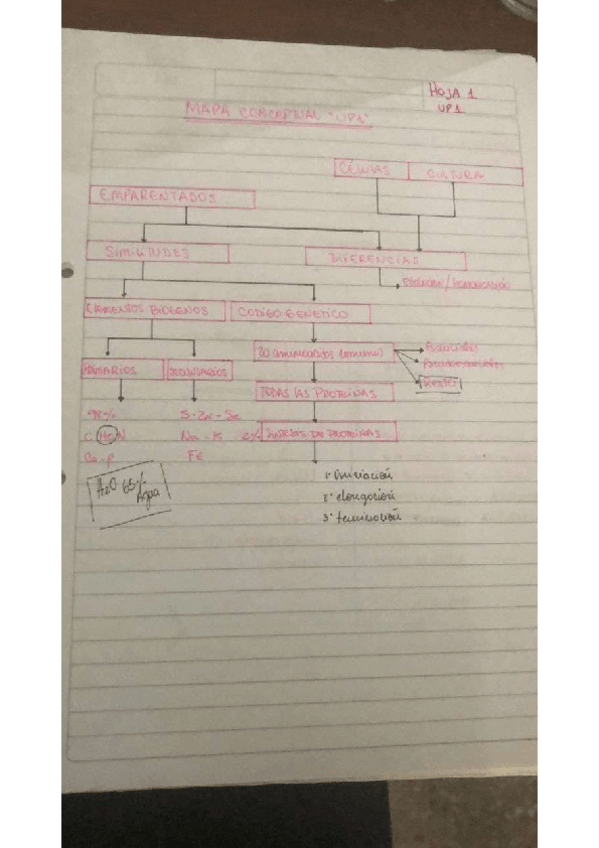 HOJA 1
UP1
MAPA CONCEPTUAL "UP1"
CÉLULAS CULTURA
EMPARENTADOS
SIMILITUDES DIFERENCIAS
ELEMENTOS BIOGENOS CODIGO GENETICO
20 aminoacidos comunes Esenciales
PRIMARIOS SECUNDARIOS
TODAS LAS PROTEINAS
98% S-Zn-Se
C HO N Na-K 2% SINTESIS DE PROTEINAS
Ca-P Fe
H2O 65% Agua
1° iniciación
2° elongación
3° terminación